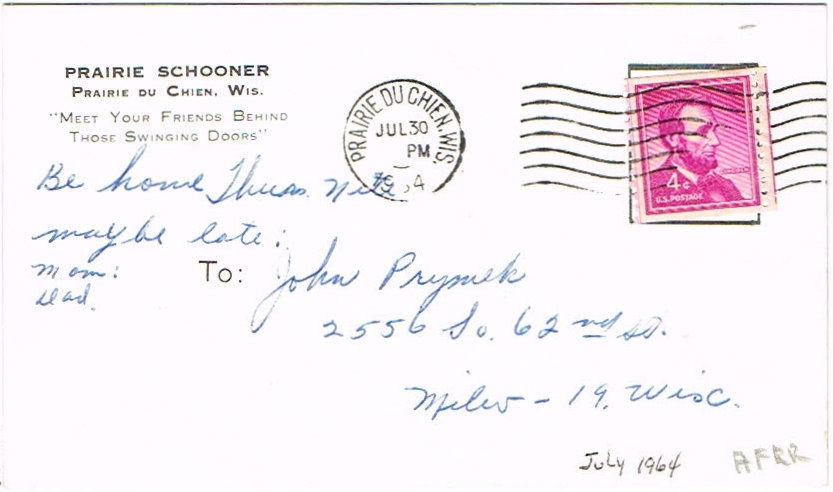 PRAIRIE SCHOONER
PRAIRIE DU CHIEN, WIS.
"MEET YOUR FRIENDS BEHIND
THOSE SWINGING DOORS"
PRAIRIE DU CHIEN, WIS.
JUL 30
PM
4¢
LINCOLN
U.S. POSTAGE
Be home Thurs. Nite
maybe late:
Mom:
dad.
To: John Prymek
2556 So. 62nd St.
Milw - 19, Wisc.
July 1964
AFRR